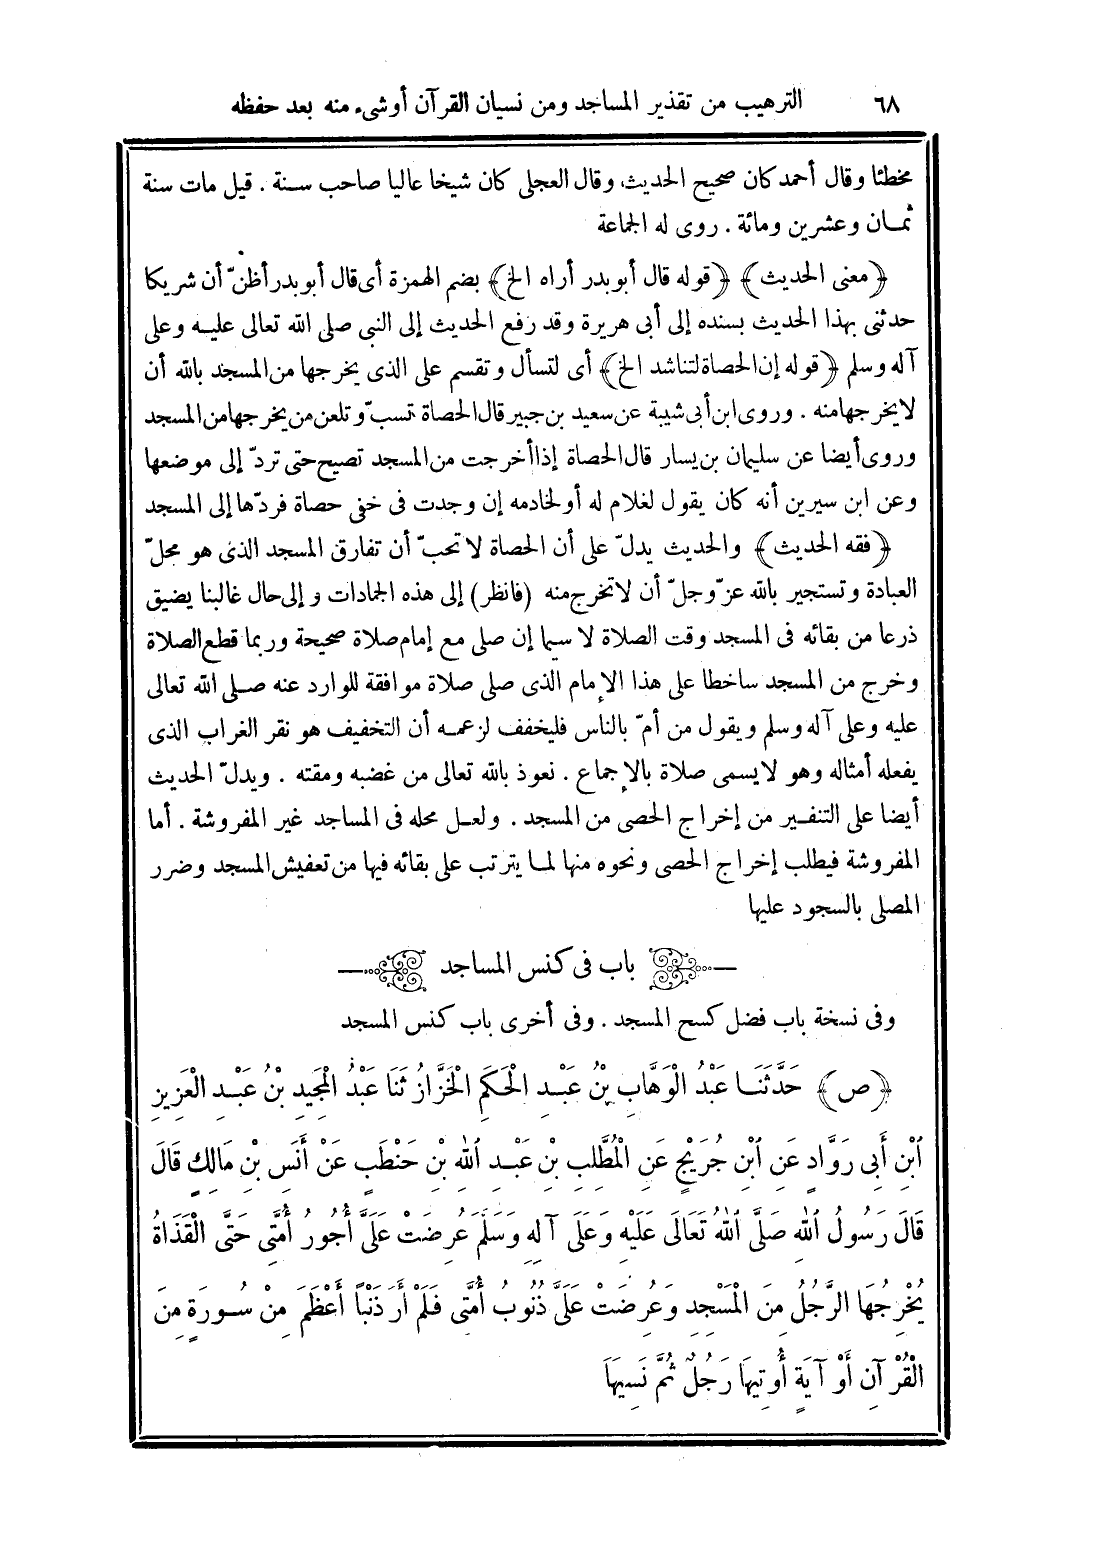 ٦٨ الترهيب من تقذير المساجد ومن نسيان القرآن أوشىء منه بعد حفظه
مخطئا وقال أحمد كان صحيح الحديث وقال العجلى كان شيخا عاليا صاحب سنة . قيل مات سنة
ثمان وعشرين ومائة . روى له الجماعة
﴿معنى الحديث﴾ ﴿قوله قال أبوبدر أراه الخ﴾ بضم الهمزة أى قال أبوبدر أظنّ أن شريكا
حدثنى بهذا الحديث بسنده إلى أبى هريرة وقد رفع الحديث إلى النبى صلى الله تعالى عليه وعلى
آله وسلم ﴿قوله إن الحصاة لتناشد الخ﴾ أى لتسأل وتقسم على الذى يخرجها من المسجد بالله أن
لا يخرجها منه . وروى ابن أبى شيبة عن سعيد بن جبير قال الحصاة تسبّ وتلعن من يخرجها من المسجد
وروى أيضا عن سليمان بن يسار قال الحصاة إذا أخرجت من المسجد تصيح حتى تردّ إلى موضعها
وعن ابن سيرين أنه كان يقول لغلام له أو لخادمه إن وجدت فى خفى حصاة فردّها إلى المسجد
﴿فقه الحديث﴾ والحديث يدلّ على أن الحصاة لا تحبّ أن تفارق المسجد الذى هو محلّ
العبادة وتستجير بالله عزّ وجلّ أن لا تخرج منه (فانظر) إلى هذه الجمادات وإلى حال غالبنا يضيق
ذرعا من بقائه فى المسجد وقت الصلاة لا سيما إن صلى مع إمام صلاة صحيحة وربما قطع الصلاة
وخرج من المسجد ساخطا على هذا الإمام الذى صلى صلاة موافقة للوارد عنه صلى الله تعالى
عليه وعلى آله وسلم ويقول من أمّ بالناس فليخفف لزعمه أن التخفيف هو نقر الغراب الذى
يفعله أمثاله وهو لا يسمى صلاة بالإجماع . نعوذ بالله تعالى من غضبه ومقته . ويدلّ الحديث
أيضا على التنفير من إخراج الحصى من المسجد . ولعل محله فى المساجد غير المفروشة . أما
المفروشة فيطلب إخراج الحصى ونحوه منها لما يترتب على بقائه فيها من تعفيش المسجد وضرر
المصلى بالسجود عليها
باب فى كنس المساجد
وفى نسخة باب فضل كسح المسجد . وفى أخرى باب كنس المسجد
﴿ص﴾ حَدَّثَنَا عَبْدُ الْوَهَّابِ بْنُ عَبْدِ الْحَكَمِ الْخَزَّازُ ثَنَا عَبْدُ الْمَجِيدِ بْنُ عَبْدِ الْعَزِيزِ
ابْنِ أَبِى رَوَّادٍ عَنِ ابْنِ جُرَيْجٍ عَنِ الْمُطَّلِبِ بْنِ عَبْدِ اللهِ بْنِ حَنْطَبٍ عَنْ أَنَسِ بْنِ مَالِكٍ قَالَ
قَالَ رَسُولُ اللهِ صَلَّى اللهُ تَعَالَى عَلَيْهِ وَعَلَى آلِهِ وَسَلَّمَ عُرِضَتْ عَلَىَّ أُجُورُ أُمَّتِى حَتَّى الْقَذَاةُ
يُخْرِجُهَا الرَّجُلُ مِنَ الْمَسْجِدِ وَعُرِضَتْ عَلَىَّ ذُنُوبُ أُمَّتِى فَلَمْ أَرَ ذَنْبًا أَعْظَمَ مِنْ سُورَةٍ مِنَ
الْقُرْآنِ أَوْ آيَةٍ أُوتِيهَا رَجُلٌ ثُمَّ نَسِيَهَا